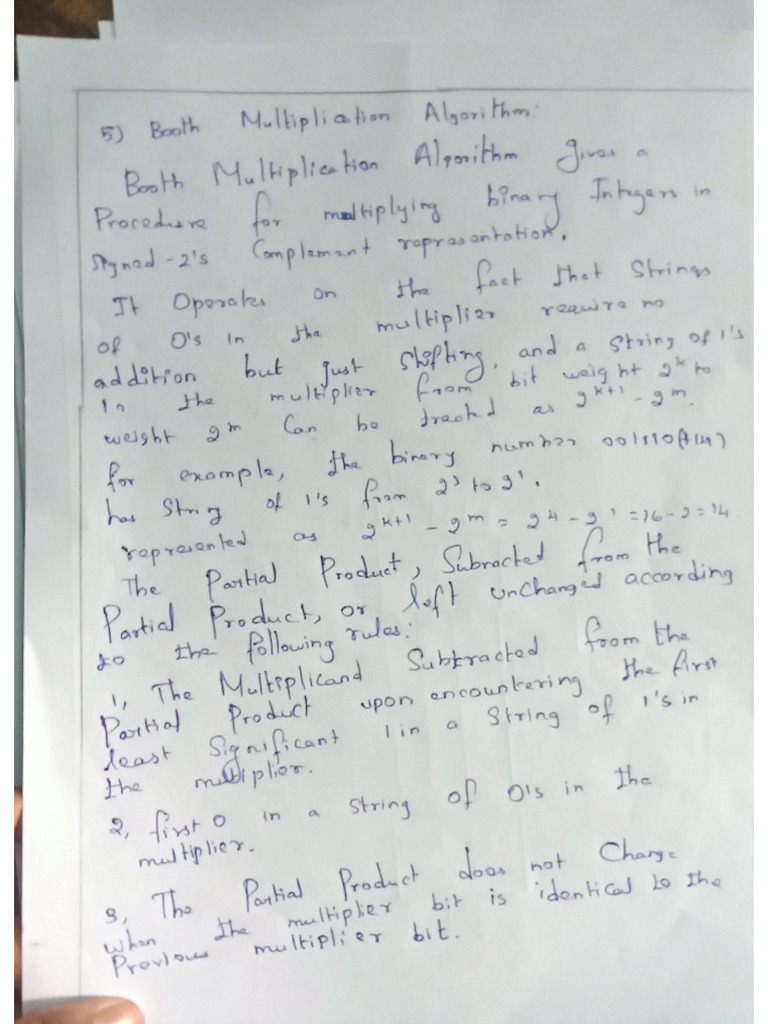 5) Booth Multipliation Algorithm:
Booth Multiplication Algorithm gives a
Procedure for multiplying binary Integers in
signed-2's Complement representation.
It Operates on the fact that Strings
of 0's in the multiplier require no
addition but just shifting, and a string of 1's
in the multiplier from bit weight 2^k to
weight 2^m Can be treated as 2^k+1 - 2^m.
for example, the binary number 001110(+14)
has String of 1's from 2^3 to 2^1.
represented as 2^k+1 - 2^m = 2^4 - 2^1 = 16 - 2 = 14
The Partial Product, Subracted from the
Partial Product, or left unchanged according
to the following rules:
1, The Multiplicand Subtracted from the
Partial Product upon encountering the first
least Significant 1 in a String of 1's in
the multiplier.
2, first 0 in a string of 0's in the
multiplier.
3, The Partial Product does not Change
when the multiplier bit is identical to the
Previous multiplier bit.